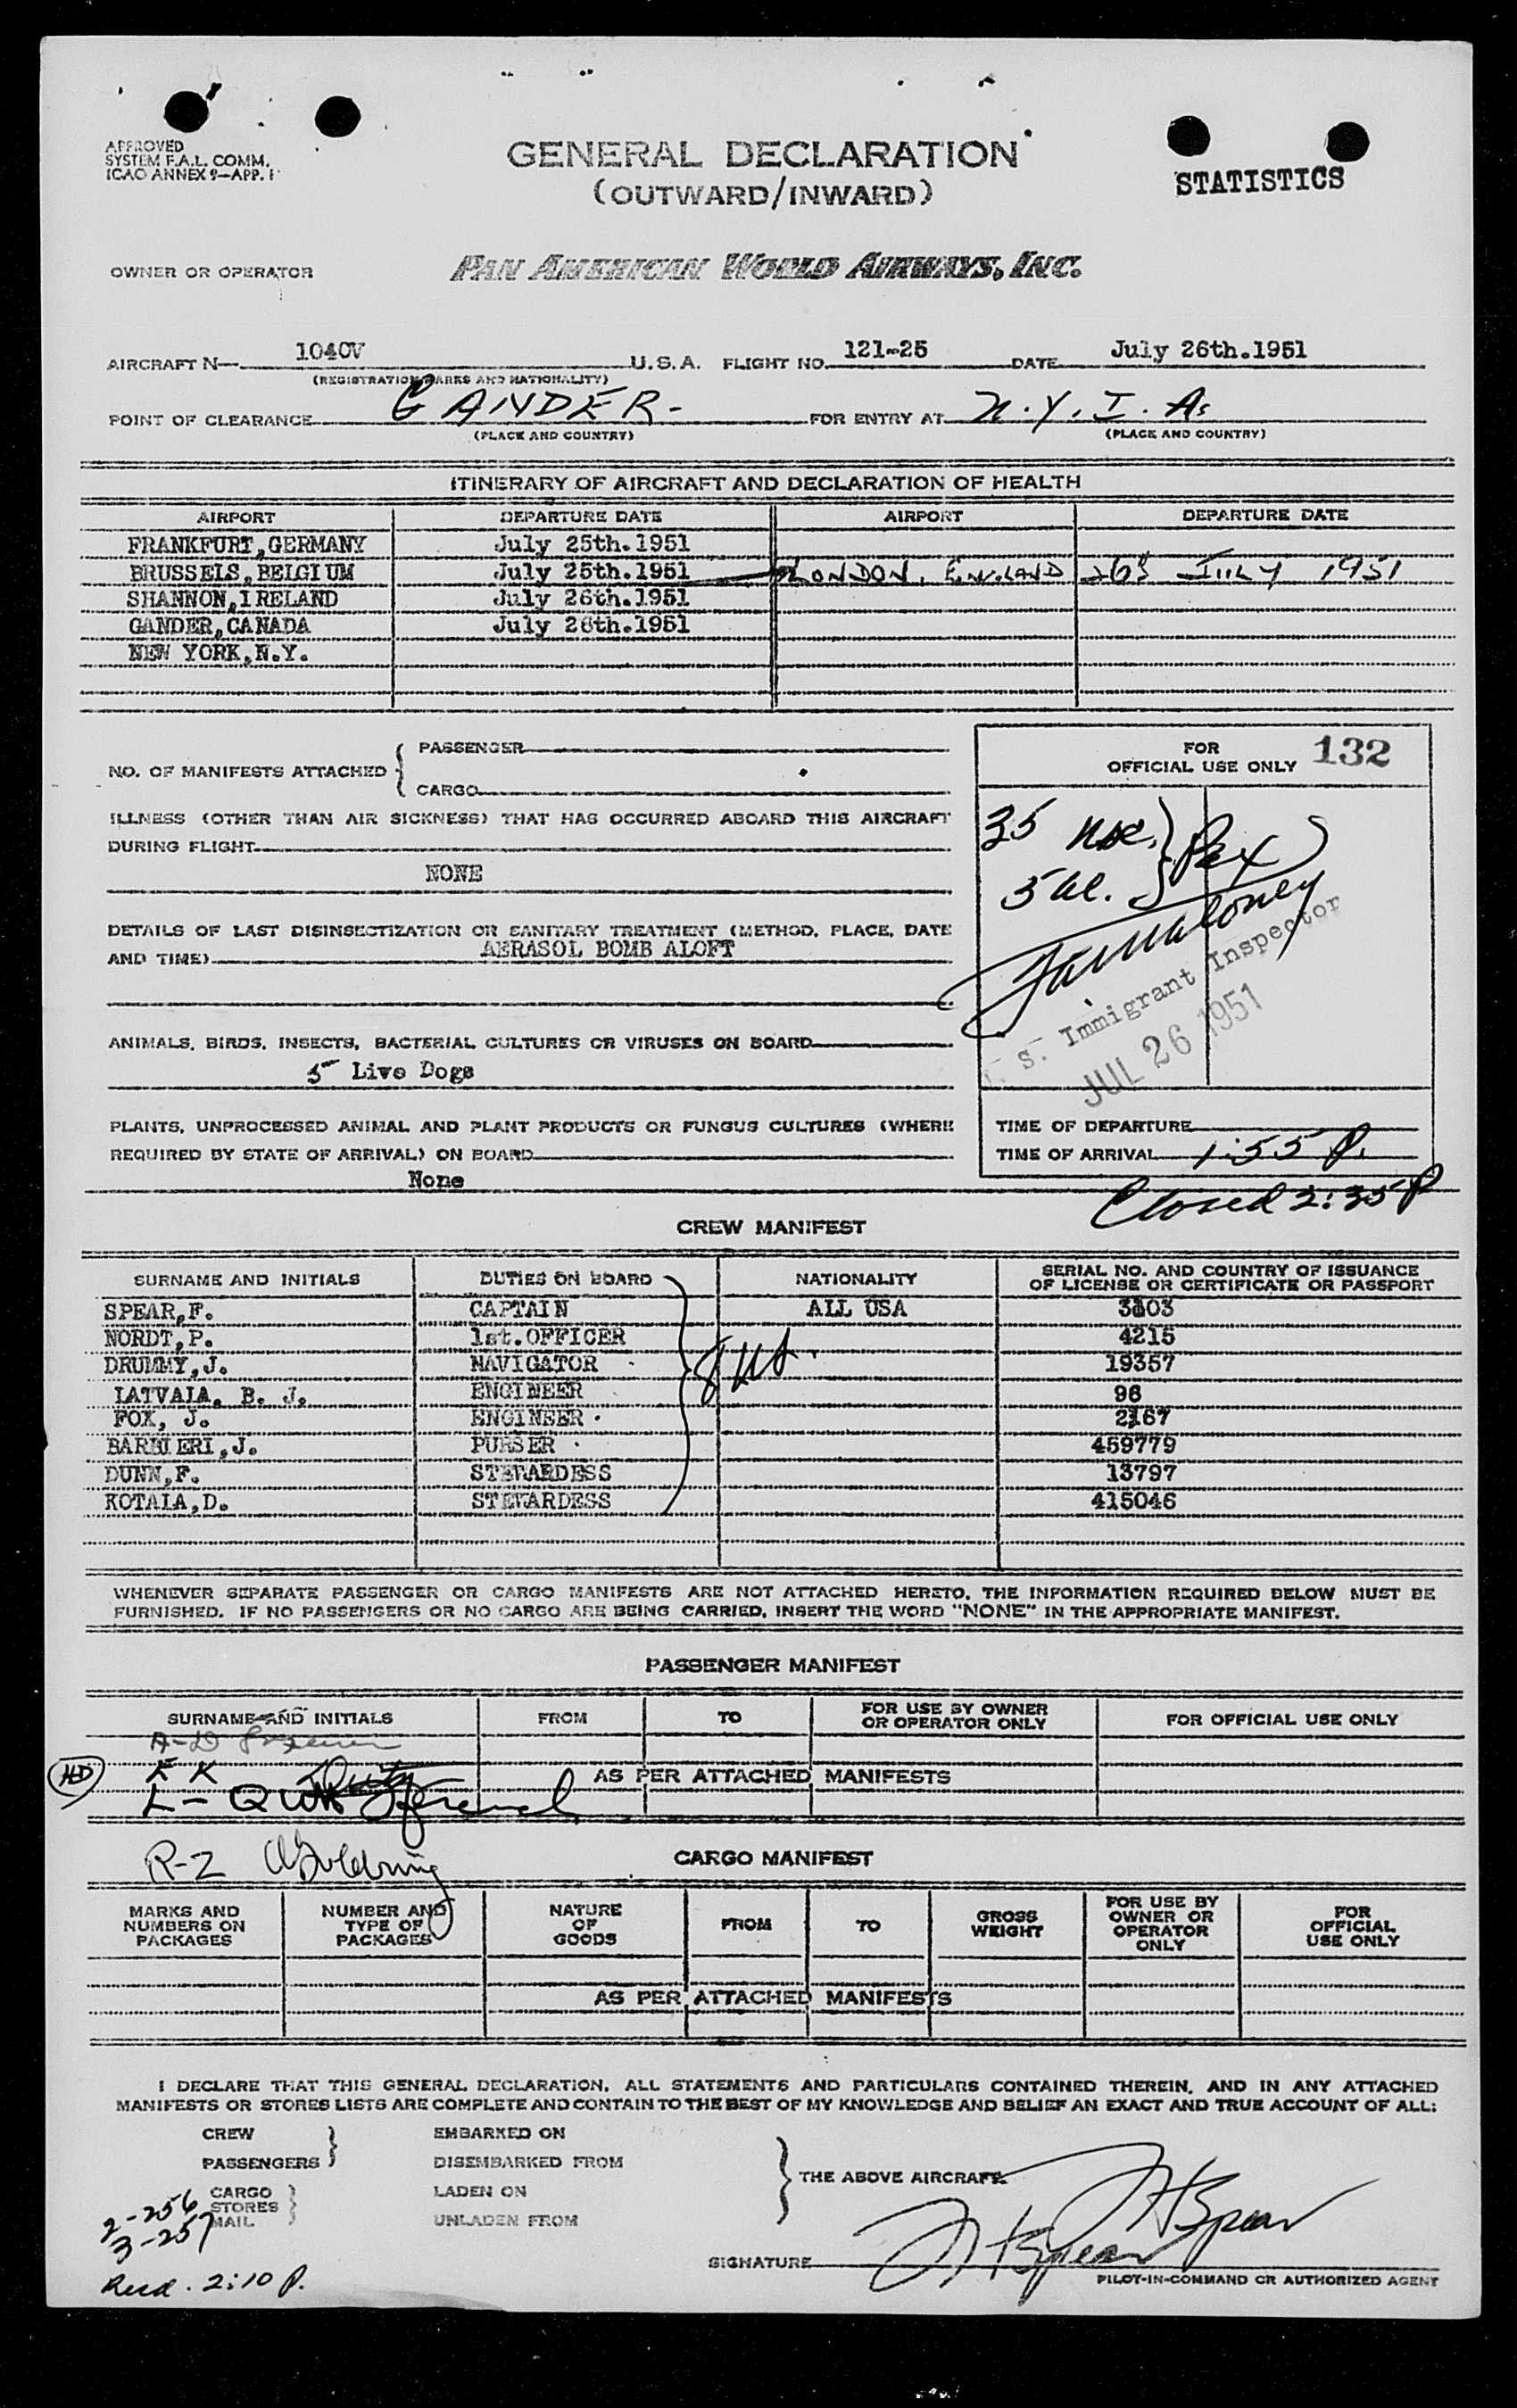 APPROVED
SYSTEM F.A.L. COMM.
ICAO ANNEX 9—APP. 1
GENERAL DECLARATION
(OUTWARD/INWARD)
STATISTICS
OWNER OR OPERATOR PAN AMERICAN WORLD AIRWAYS, INC.
AIRCRAFT N— 1040V U.S.A. FLIGHT NO. 121-25 DATE July 26th.1951
(REGISTRATION MARKS AND NATIONALITY)
POINT OF CLEARANCE GANDER- FOR ENTRY AT N.Y.I.A.
(PLACE AND COUNTRY) (PLACE AND COUNTRY)
ITINERARY OF AIRCRAFT AND DECLARATION OF HEALTH
AIRPORT DEPARTURE DATE AIRPORT DEPARTURE DATE
FRANKFURT,GERMANY July 25th.1951
BRUSSELS,BELGIUM July 25th.1951 LONDON, ENGLAND JULY 1951
SHANNON,IRELAND July 26th.1951
GANDER,CANADA July 26th.1951
NEW YORK,N.Y.
NO. OF MANIFESTS ATTACHED { PASSENGER
CARGO
FOR OFFICIAL USE ONLY 132
ILLNESS (OTHER THAN AIR SICKNESS) THAT HAS OCCURRED ABOARD THIS AIRCRAFT
DURING FLIGHT
NONE
35 Pax
5 al.
DETAILS OF LAST DISINSECTIZATION OR SANITARY TREATMENT (METHOD, PLACE, DATE
AND TIME) AERASOL BOMB ALOFT
S. Immigrant Inspector
JUL 26 1951
ANIMALS, BIRDS, INSECTS, BACTERIAL CULTURES OR VIRUSES ON BOARD
5 Live Dogs
PLANTS, UNPROCESSED ANIMAL AND PLANT PRODUCTS OR FUNGUS CULTURES (WHERE
REQUIRED BY STATE OF ARRIVAL) ON BOARD
None
TIME OF DEPARTURE
TIME OF ARRIVAL 1:55 P.
Closed 2:35 P
CREW MANIFEST
SURNAME AND INITIALS DUTIES ON BOARD NATIONALITY SERIAL NO. AND COUNTRY OF ISSUANCE OF LICENSE OR CERTIFICATE OR PASSPORT
SPEAR,F. CAPTAIN ALL USA
NORDT,P. 1st.OFFICER 4215
DRUMMY,J. NAVIGATOR 19357
LATVALA, B. J. ENGINEER 96
FOX, J. ENGINEER 2167
BARBIERI,J. PURSER 459779
DUNN,F. STEWARDESS 13797
KOTALA,D. STEWARDESS 415046
WHENEVER SEPARATE PASSENGER OR CARGO MANIFESTS ARE NOT ATTACHED HERETO, THE INFORMATION REQUIRED BELOW MUST BE
FURNISHED. IF NO PASSENGERS OR NO CARGO ARE BEING CARRIED, INSERT THE WORD "NONE" IN THE APPROPRIATE MANIFEST.
PASSENGER MANIFEST
SURNAME AND INITIALS FROM TO FOR USE BY OWNER OR OPERATOR ONLY FOR OFFICIAL USE ONLY
A-D
E K
AS PER ATTACHED MANIFESTS
L-Q
R-Z Goldring
CARGO MANIFEST
MARKS AND NUMBERS ON PACKAGES NUMBER AND TYPE OF PACKAGES NATURE OF GOODS FROM TO GROSS WEIGHT FOR USE BY OWNER OR OPERATOR ONLY FOR OFFICIAL USE ONLY
AS PER ATTACHED MANIFESTS
I DECLARE THAT THIS GENERAL DECLARATION, ALL STATEMENTS AND PARTICULARS CONTAINED THEREIN, AND IN ANY ATTACHED
MANIFESTS OR STORES LISTS ARE COMPLETE AND CONTAIN TO THE BEST OF MY KNOWLEDGE AND BELIEF AN EXACT AND TRUE ACCOUNT OF ALL:
CREW EMBARKED ON
PASSENGERS DISEMBARKED FROM THE ABOVE AIRCRAFT.
CARGO LADEN ON
STORES
MAIL UNLADEN FROM
2-256
3-257
SIGNATURE Spear
Spear
PILOT-IN-COMMAND OR AUTHORIZED AGENT
Recd. 2:10 P.